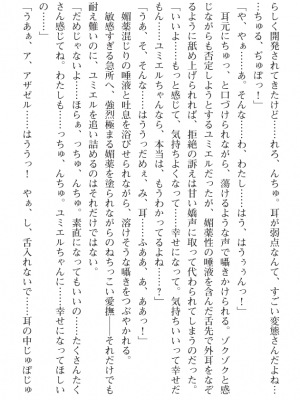 らしく開発されてきたけど……れろ、んちゅ、耳が弱点なんて、すごい変態さんだよね…
…ちゅる、ぢゅぽっ！」
「や、やぁ……あっ、わ、わたし……はぅ、はううぅんっ！」
耳元にちゅっ、と口づけられながら、蕩けるような声で囁きかけられる。ゾクゾクと感
じながらも否定しようとするユミエルだったが、媚薬性の唾液を含んだ舌先で外耳をなぞ
るように舐め上げられれば、拒絶の訴えは甘い嬌声に取って代わられてしまうのだった。
「いいよ……もっと感じて、気持ちよくなって……幸せになって。気持ちいいって幸せだ
もん……ユミエルちゃんなら、本当は、もうわかってるよね……？」
「うあ、そ、そんな……はううっだめぇ、み、耳……ふああ、あ、ああぁっ！」
媚薬混じりの唾液と吐息を浴びせられながら、溶けそうな囁きをつぶやかれる。
敏感すぎる急所へ、強烈極まる媚薬を塗られながらのねちっこい愛撫──それだけでも
耐え難いのに、ユミエルを追い詰めるのはそれだけではない。
「だめじゃないよ。ほらぁ、っちゅ、んちゅ。素直になってもいいの……たくさんたく
さん感じてね。わたしも……っちゅ、んちゅ。ユミエルちゃんに……幸せになってほしい
の……」
「うああぁ、ア、アザゼル……はううっ！　やぁ、し、舌入れないで……耳の中じゅぽじゅ